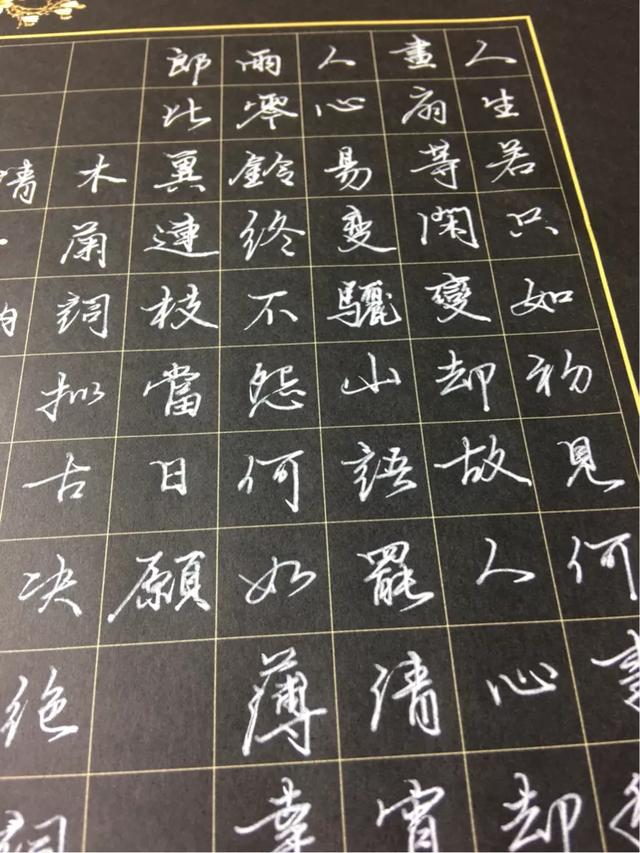 人生若只如初見何事
畫扇等閑變却故人心却
人心易變驪山語罷清宵
雨零鈴終不怨何如薄幸
郎比翼連枝當日願
木蘭詞拟古决絶詞